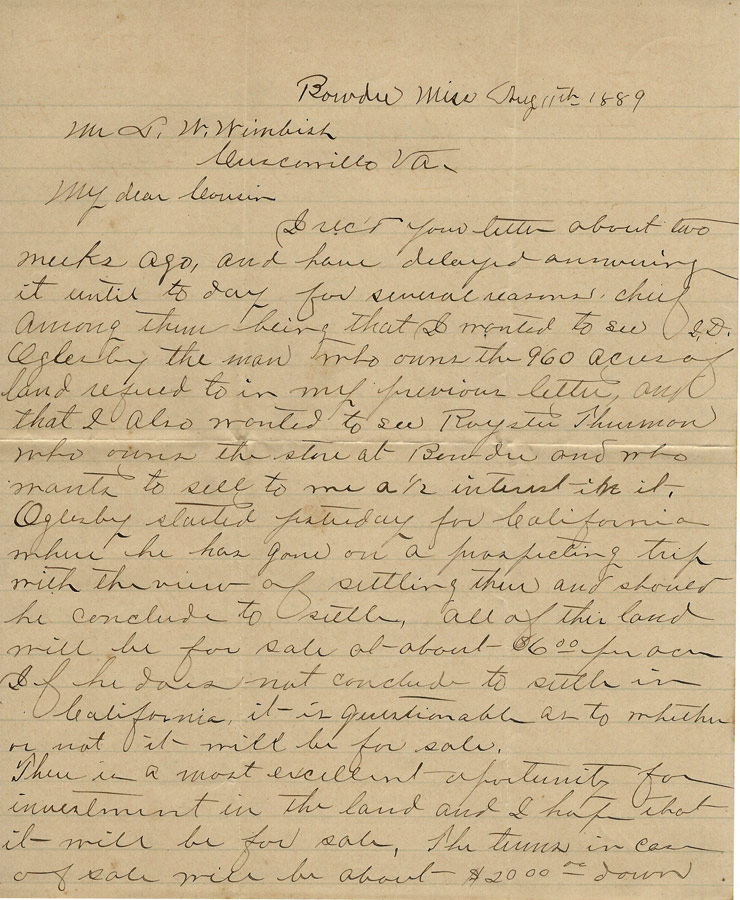 Bowdre Miss Aug 11th 1889
Mr L. W. Wimbish
Cluscorrillo Va.
My dear Cousin
I rec'd your letter about two
weeks ago, and have delayed answering
it until to day for several reasons, chief
among them being that I wanted to see I. D.
Oglesby the man who owns the 960 acres of
land refured to in my previous letter, and
that I also wanted to see Royster Thurmon
who owns the store at Bowdre and who
wants to sell to me a 1/2 interest in it.
Oglesby started yesterday for California
where he has gone on a prospecting trip
with the view of settling there and should
he conclude to settle, all of this land
will be for sale at about $6 00 per acre
If he does not conclude to settle in
California, it is questionable as to whether
or not it will be for sale.
There is a most excellent oportunity for
investment in the land and I hope that
it will be for sale, The terms in case
of sale will be about $2000 00 down